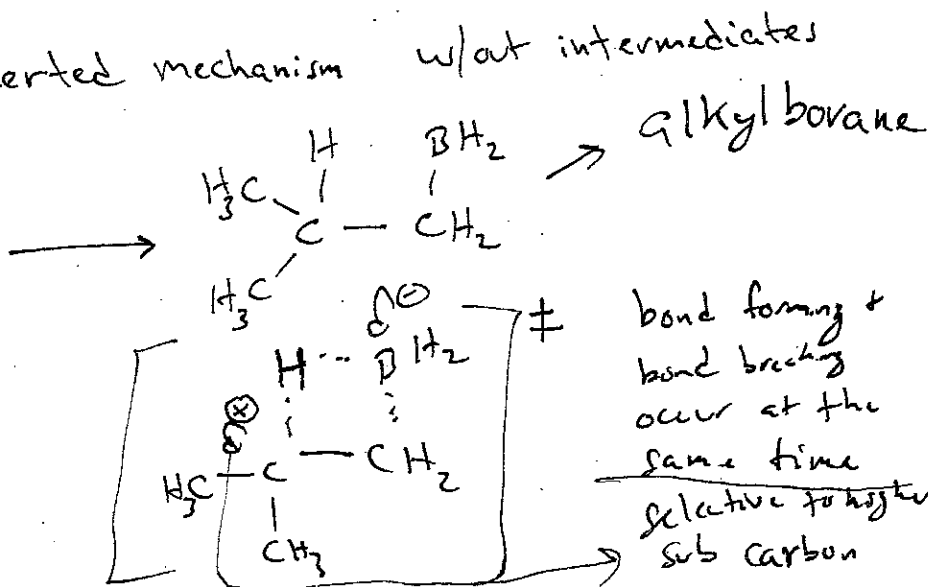 erted mechanism w/out intermediates
H BH₂
H₃C C — CH₂ → alkylborane
H₃C
⊖ ‡
H --- BH₂
⊕
H₃C — C — CH₂
CH₃
bond forming &
bond breaking
occur at the
same time
selective to higher
sub carbon